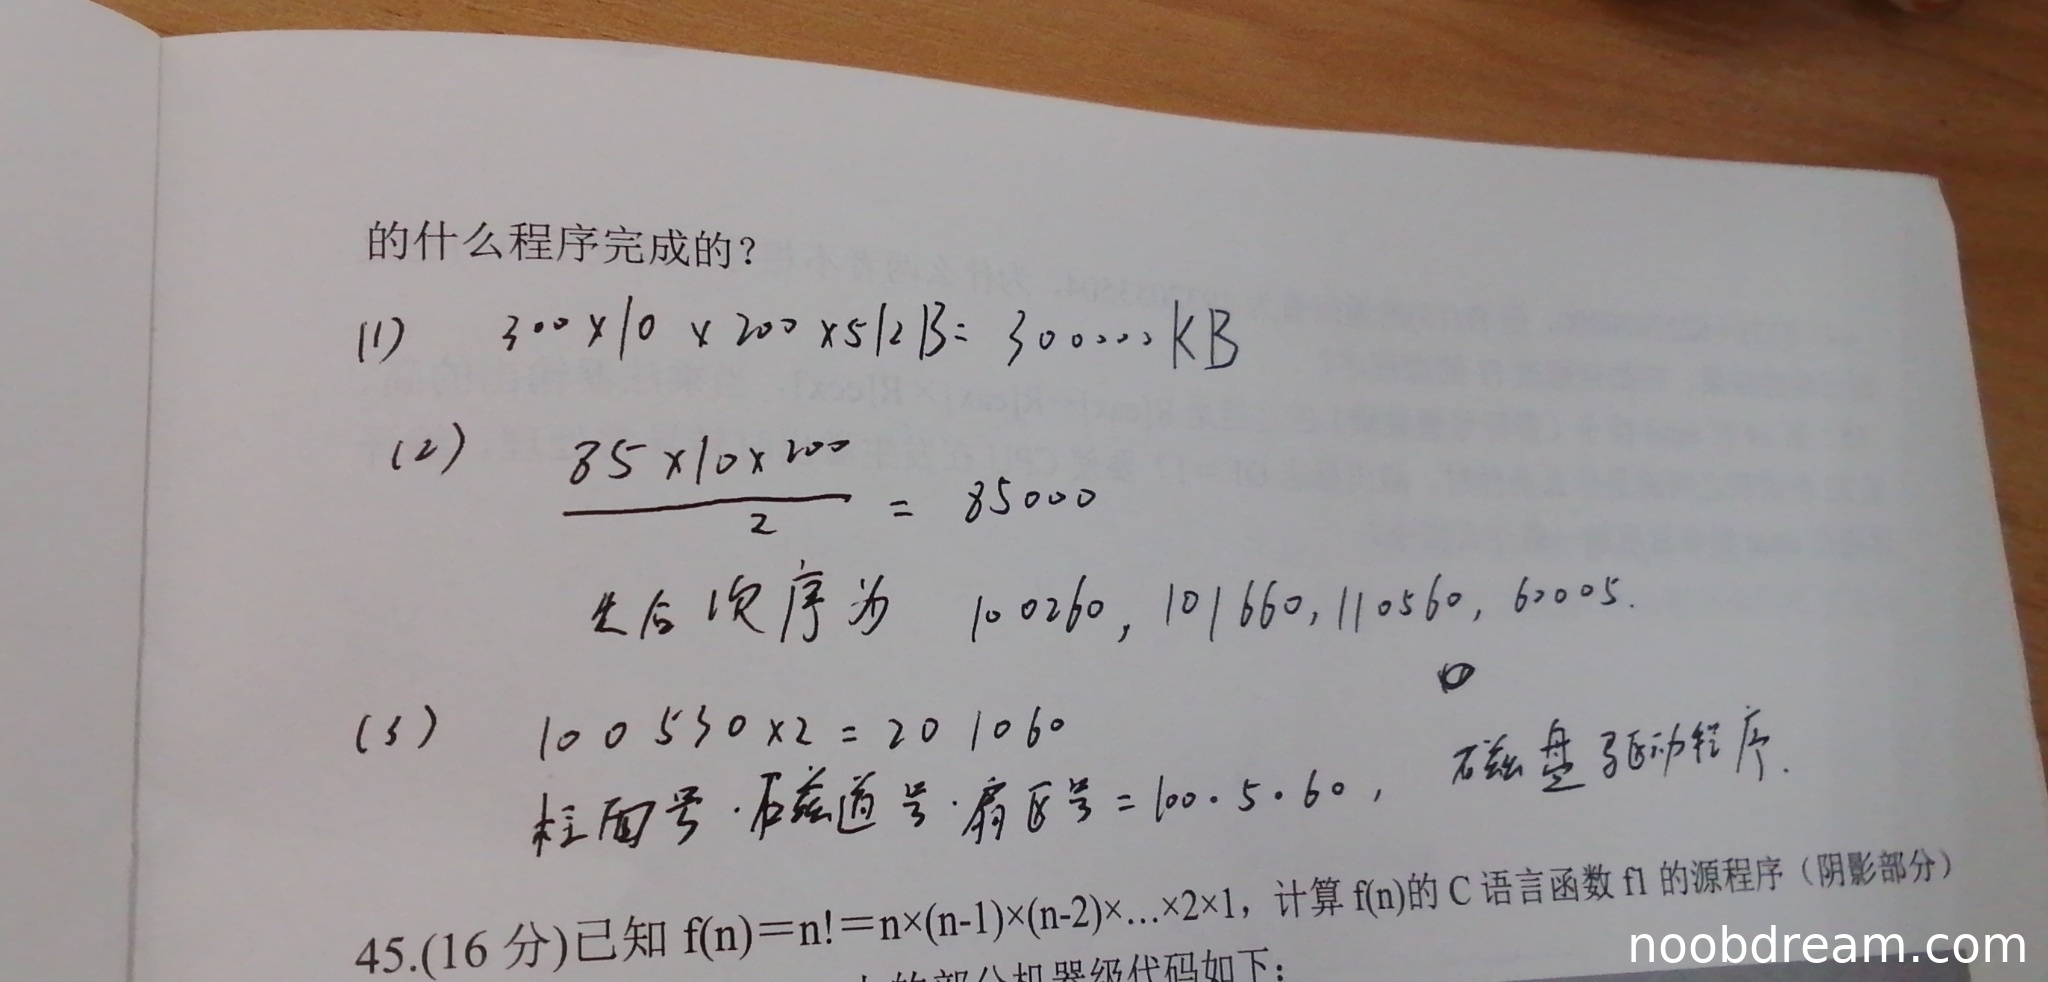 的什么程序完成的？
(1) 300×10×200×512B=300000KB
(2) 85×10×200
2
= 85000
先后次序为 100260, 101660, 110560, 60005.
(3) 100530×2=201060
柱面号·磁道号·扇区号=100·5·60, 磁盘驱动程序.
45.(16 分)已知 f(n)＝n!＝n×(n-1)×(n-2)×…×2×1，计算 f(n)的 C 语言函数 f1 的源程序（阴影部分）
的部分机器级代码如下：
noobdream.com